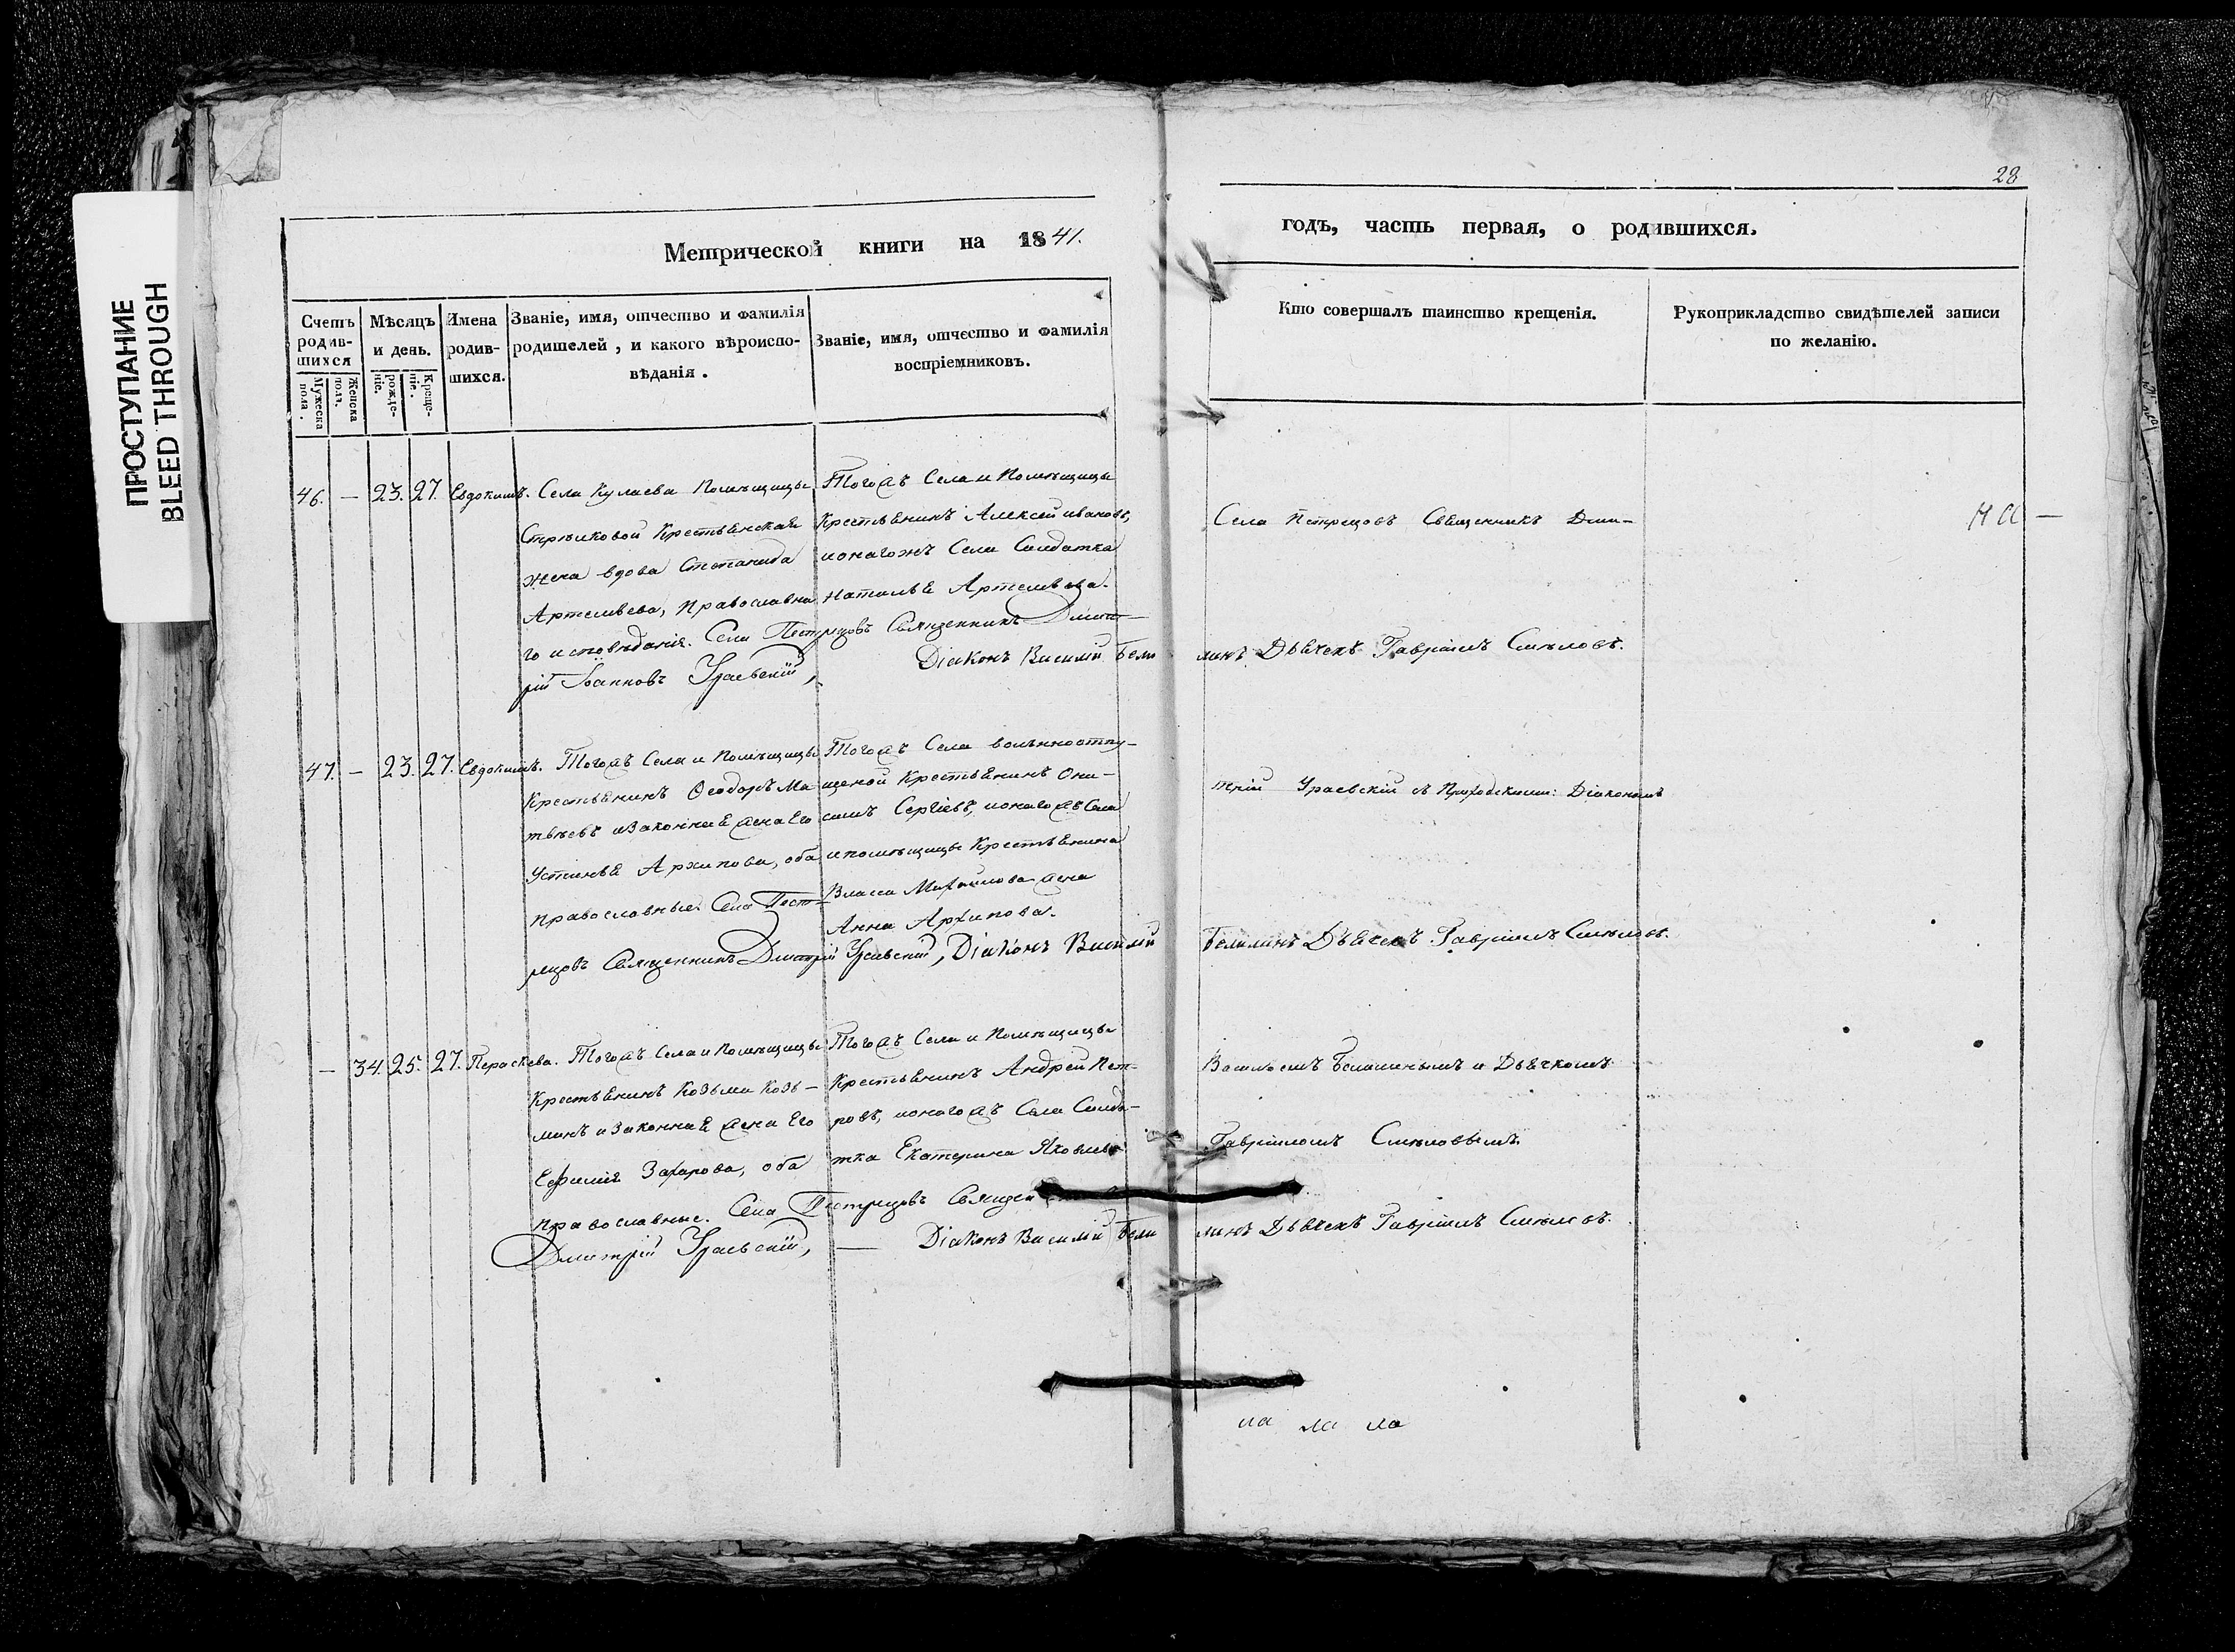 ПРОСТУПАНИЕ
BLEED THROUGH
28
Метрической книги на 1841.
годъ, часть первая, о родившихся.
Счетъ родившихся
Мужеска пола.
Женска пола.
Мѣсяцъ и день.
рожденіе.
Крещеніе.
Имена родившихся.
Званіе, имя, отчество и фамилія
родителей, и какого вѣроиспо-
вѣданія.
Званіе, имя, отчество и фамилія
воспріемниковъ.
Кто совершалъ таинство крещенія.
Рукоприкладство свидѣтелей записи
по желанію.
46. — 23. 27. Евдокимъ.
Села Кулаева Помѣщицы
Стрѣлковой Крестьянская
жена вдова Степанида
Артемьева, Православна
го исповѣданія.
Тогожъ Села и Помѣщицы
Крестьянинъ Алексей Ивановъ,
и онагожъ Села Салдатка
Наталья Артемьева.
Села Пестрецовъ Священникъ Дмит-
рій Іоанновъ Ураевскій,
Діаконъ Василій Бели
линъ Дьячекъ Гавріилъ Смѣловъ.
Села Пестрецовъ Священникъ Дми-
47. — 23. 27. Евдокимъ.
Тогожъ Села и Помѣщицы
Крестьянинъ Ѳеодоръ Ма-
твѣевъ и Законная жена Его
Устинья Архипова, оба
православные.
Тогожъ Села вольноотпу-
щеной Крестьянинъ Они-
симъ Сергіевъ, и онагожъ Села
и помѣщицы Крестьянина
Власа Михайлова жена
Анна Архипова.
Села Пест-
рецовъ Священникъ Дмитрій Ураевскій, Діаконъ Василій
Белилинъ Дьячекъ Гавріилъ Смѣловъ.
трій Ураевскій съ Приходскими: Діакономъ
— 34. 25. 27. Параскева.
Тогожъ Села и Помѣщицы
Крестьянинъ Козьма Козь-
минъ и Законная жена Его
Ефимія Захарова, оба
православные.
Тогожъ Села и Помѣщицы
Крестьянинъ Андрей Пет-
ровъ, и онагожъ Села Салда-
тка Екатерина Яковлева
Села Пестрецовъ Священ
Дмитрій Ураевскій, — Діаконъ Василій Бели
линъ Дьячекъ Гавріилъ Смѣловъ.
Васильемъ Белилинымъ и Дьячкомъ
Гавріиломъ Смѣловымъ.
ла ла ла